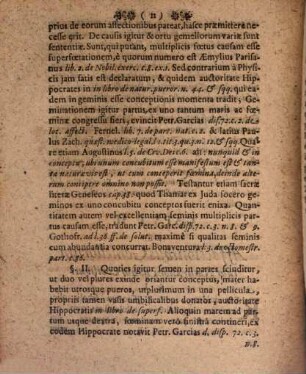 ( 11 )
prius de eorum affectionibus patear, hasce præmittere ne-
cesse erit. De causis igitur & ortu gemellorum variæ sunt
sententiæ. Sunt, qui putant, multiplicis fœtus causam esse
superfœtationem, è quorum numero est Æmylius Parisa-
nus lib. 2. de Nobil. exerc. Sed contrarium à Physi-
cis jam satis est declaratum, & quidem auctoritate Hip-
pocratis in in libro de natur. pueror. n. 44. & sqq. qui ean-
dem in geminis esse conceptionis momenta tradit. Ge-
minationem igitur partus, ex uno tantum maris ac fœmi-
næ congressu fieri, evincit Petr. Garcias disp. 72. c. 2. de
loc. affect. Fernel. lib. 7. de part. nat. c. & latius Pau-
lus Zach. quæst. medico-legal. & sqq. Quæ-
stio etiam Augustino l. 5. de Civ. Dei c. 6. ait: numquid & in
conceptu, ubi unum concubitum esse manifestum est & tan-
ta naturæ vis est, ut cum conceperit fœmina, deinde alte-
rum concipere omnino non possit. Testantur etiam sacræ
literæ Geneseos cap. 38. quod Thamar ex Juda socero gemi-
nos ex uno concubitu conceptos fuerit enixa. Quanti-
tatem autem vel excellentiam seminis multiplicis par-
tus causam esse, tradunt Petr. Garc. disp. 72. c. 3. n. 8. & 9.
Gothofr. ad l. 36. ff. de solut. maximè si qualitas seminis
cum abundantia concurrat. Bonaventura l. 3. de octomestr.
part. c. 56.
§. II. Quoties igitur semen in partes scinditur,
ut duo vel plures exinde oriantur conceptus, mater ha-
bebit utrosque pueros, ut plurimum in una pellicula,
propriis tamen vasis umbilicalibus donatos, auctoritate
Hippocratis in libro de superf. Alioquin marem ad par-
tem utique dextra, fœminam verò sinistrâ contineri, ex
eodem Hippocrate notavit Petr. Garcias d. disp. 72. c. 3.
n. 8.